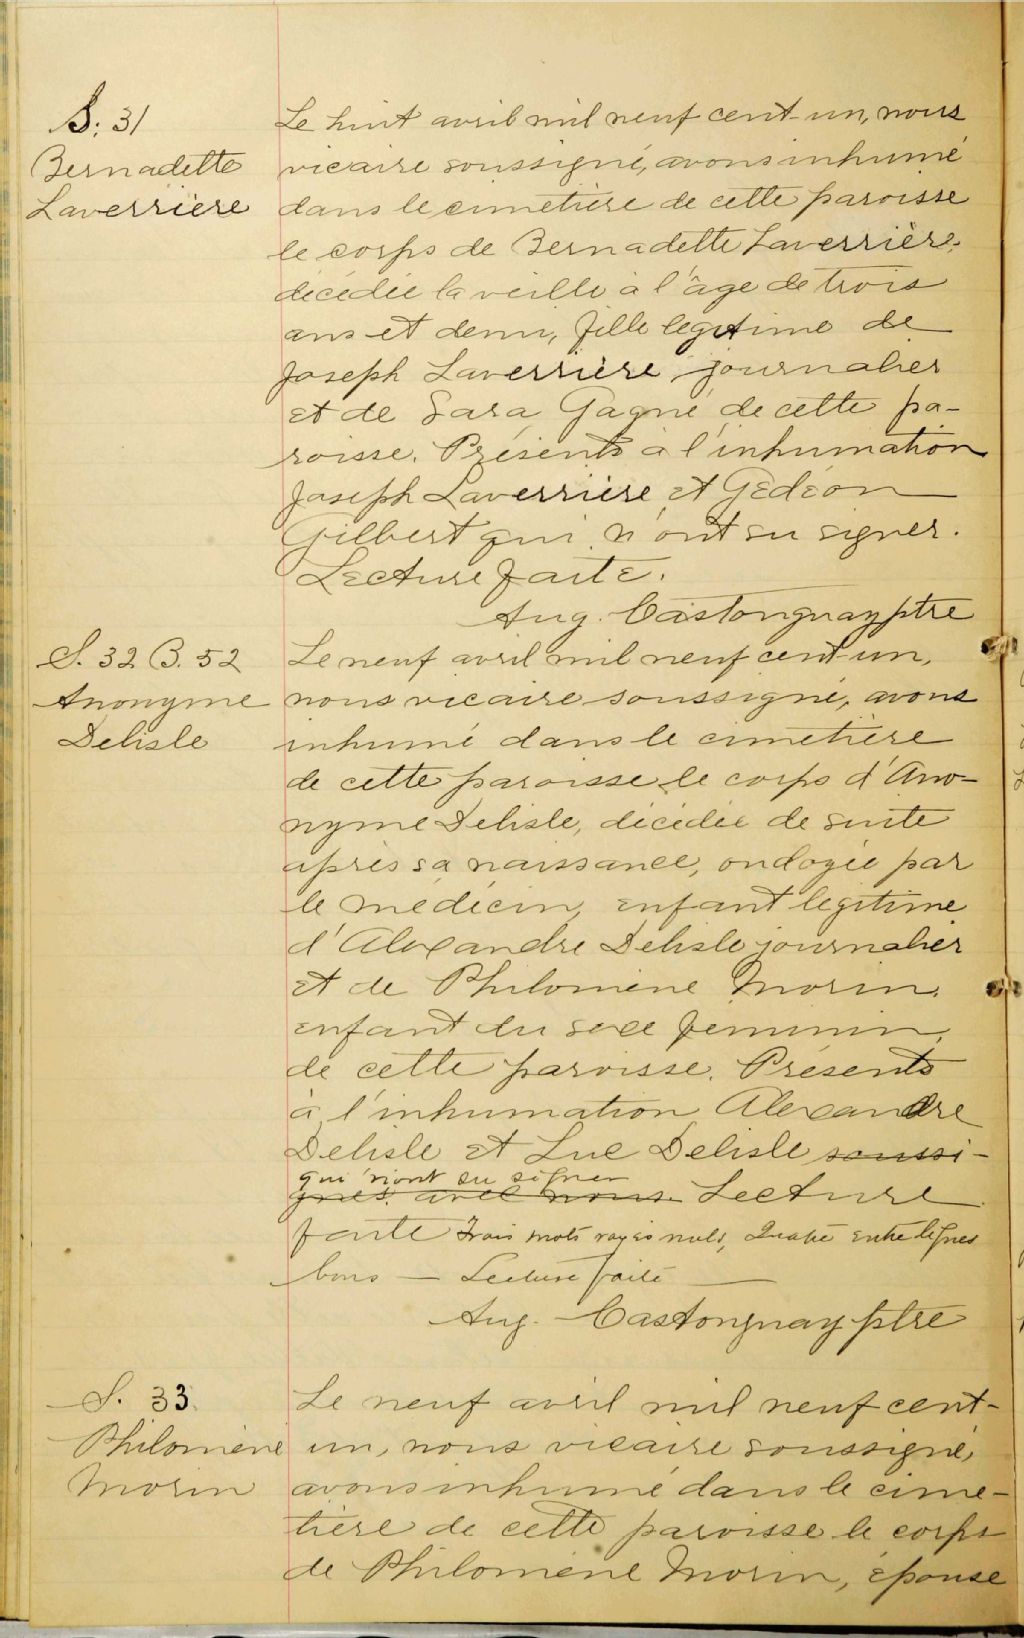 S. 31
Bernadette
Laverrière
Le huit avril mil neuf cent-un, nous
vicaire soussigné, avons inhumé
dans le cimetière de cette paroisse
le corps de Bernadette Laverrière,
décédée la veille à l'âge de trois
ans et demi, fille legitime de
Joseph Laverrière journalier
et de Sara Gagné de cette pa-
roisse. Présents à l'inhumation
Joseph Laverrière et Gédéon
Gilbert qui n'ont su signer.
Lecture faite.
Aug. Castonguay ptre
S. 32 B. 52
Anonyme
Delisle
Le neuf avril mil neuf cent-un,
nous vicaire soussigné, avons
inhumé dans le cimetière
de cette paroisse le corps d'Ano-
nyme Delisle, décédée de suite
après sa naissance, ondoyée par
le médécin, enfant legitime
d'Alexandre Delisle journalier
et de Philomène Morin,
enfant du sexe feminin,
de cette paroisse. Présents
à l'inhumation Alexandre
Delisle et Luc Delisle soussi-
qui n'ont su signer
gnés avec nous. Lecture
faite Trois mots rayés nuls, Quatre entre lignes
bons — Lecture faite —
Aug. Castonguay ptre
S. 33
Philomène
Morin
Le neuf avril mil neuf cent-
un, nous vicaire soussigné,
avons inhumé dans le cime-
tière de cette paroisse le corps
de Philomène Morin, épouse